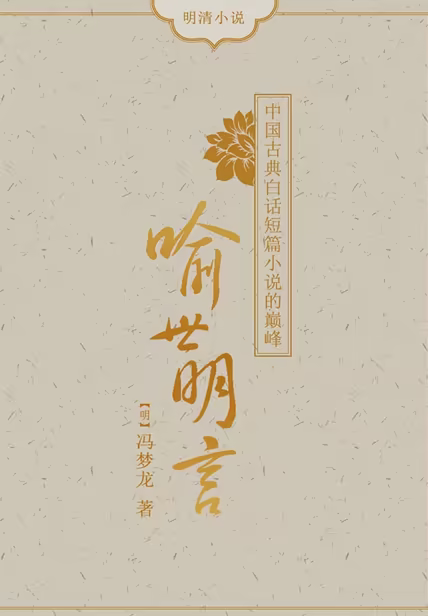 明清小说
中国古典白话短篇小说的巅峰
喻世明言
【明】冯梦龙 著